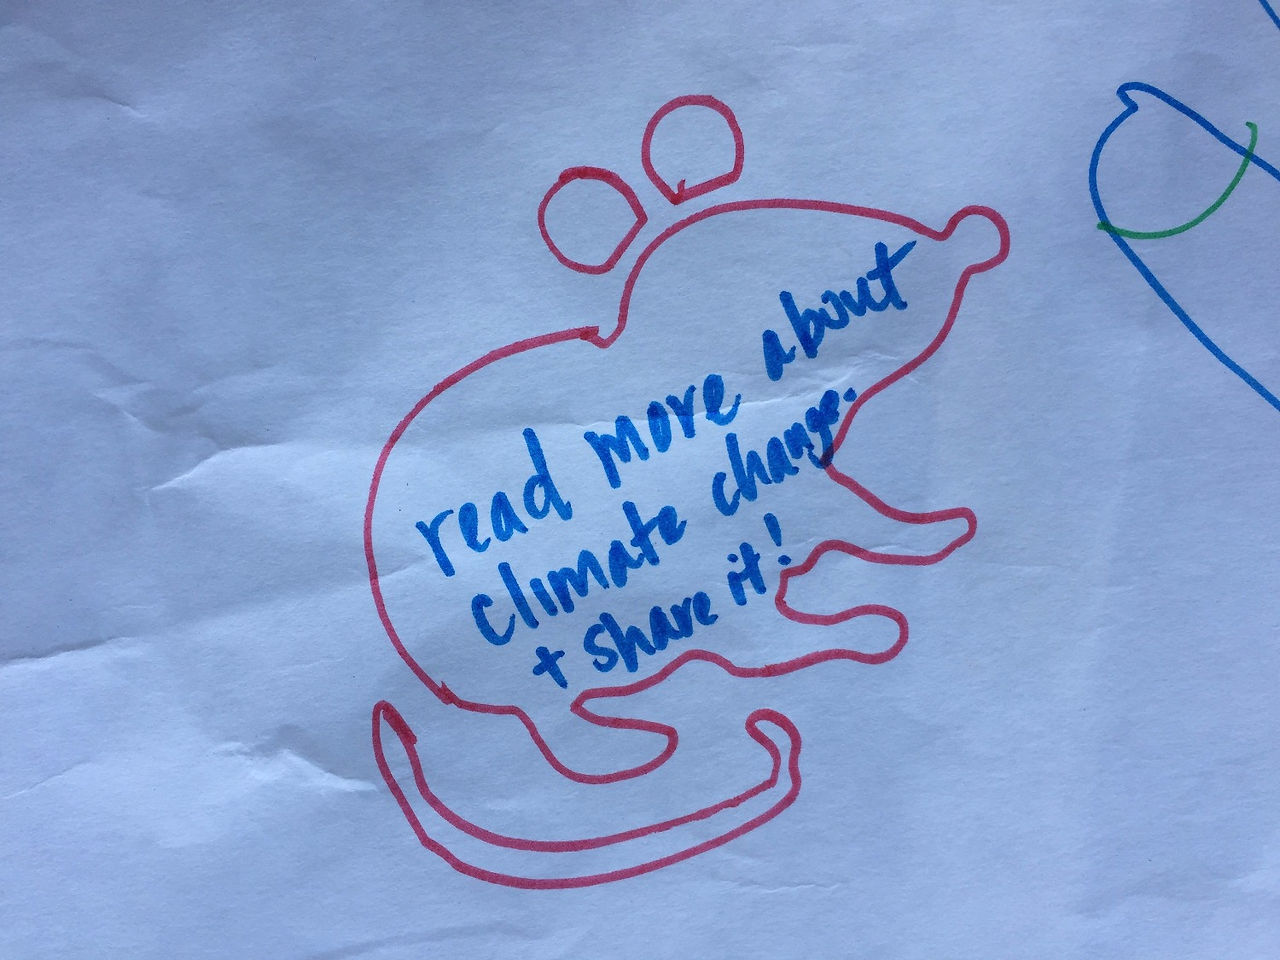 read more about
climate change.
+ share it!